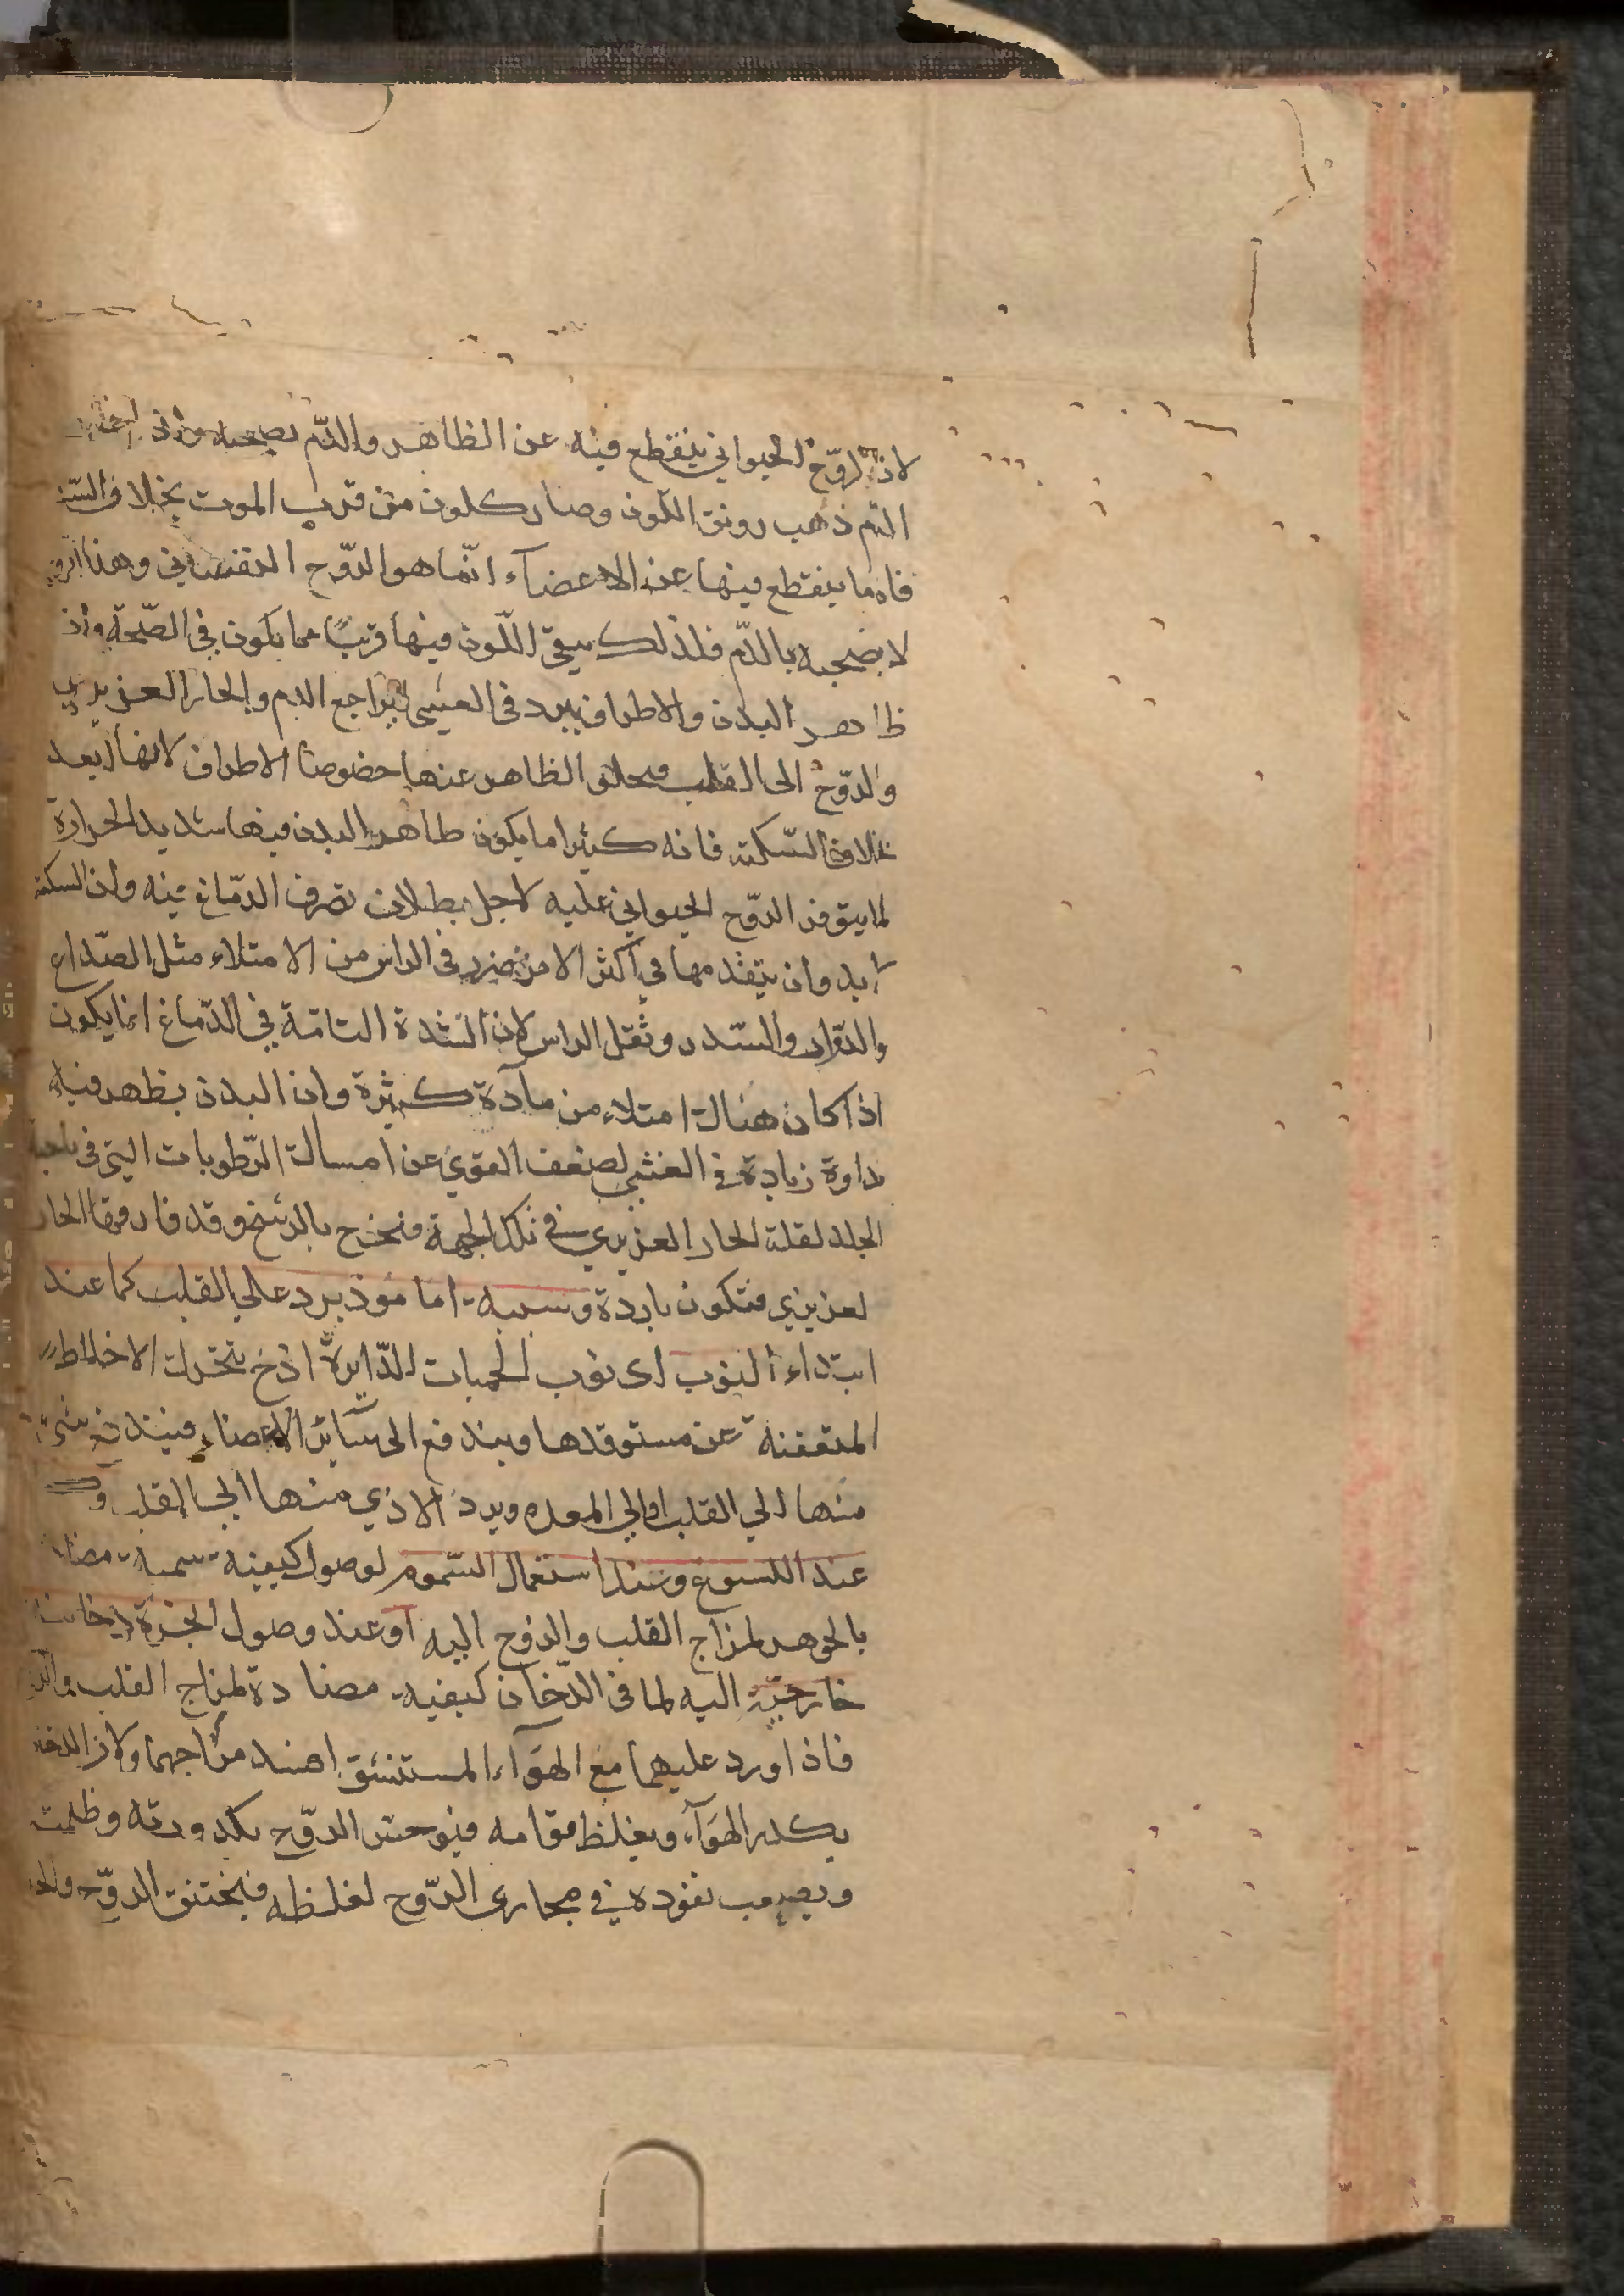 لان الروح الحيواني ينقطع فيه عن الظاهر والدم يصحبه واذ
الدم ذهب رونق اللون وصار كلون من قرب الموت بخلاف السكتة
فان ما ينقطع فيها عن الاعضآء انّما هو الرّوح النفساني وهذا الروح
لا يصحبه بالدّم فلذلك يبقى اللّون فيها قريبًا مما يكون في الصّحة واذ
ظاهر البدن والاطراف يبرد في الغشي لتراجع الدم والحار الغريزي
والرّوح الى القلب وتخلى الظاهر عنها خصوصا الاطراف لانها ابعد
بخلاف السّكتة فانه كثيرا ما يكون ظاهر البدن فيها شديد الحرارة
لما يتوفر الرّوح الحيواني عليه لاجل بطلان تصرف الدّماغ فيه وان السكتة
لابد وان يتقدمها في اكثر الامر ضرر في الراس من الامتلاء مثل الصّداع
والدّوار والسّدر وثقل الراس لان السّدة التامّة في الدّماغ انما يكون
اذا كان هناك امتلاء من مآدّة كثيرة وان البدن يظهر فيه
نداوة زيادة في الغشي لضعف القوي عن امساك الرّطوبات التي في ناحية
الجلد لقلة الحار الغريزي في تلك الجهة فتخرج بالرشح وقد فارقها الحار
لغريزي فتكون باردة وسببه اما مؤذ يرد على القلب كما عند
ابتداء النوب اى نوب الحميات الدّايرة اذ ح يتحرك الاخلاط
المتعفنة عن مستوقدها ويندفع الى سائر الاعضاء فيندفع شيء
منها الي القلب او الي المعده ويرد الاذي منها الى القلب و
عند اللسوع وعند استعمال السّموم لوصول كيفية سمية مضادة
بالجوهر لمزاج القلب والروح اليه او عند وصول ابخرة دخانية
خارجيّة اليه لما فى الدّخان كيفية مضادة لمزاج القلب والروح
فاذا ورد عليهما مع الهوآء المستنشق افسد مزاجهما ولان الدخان
يكدر الهوآء ويغلظ قوامه فيوحش الرّوح بكدورته وظلمته
ويصعب نفوذه في مجارى الرّوح لغلظه فيختنق الروّح